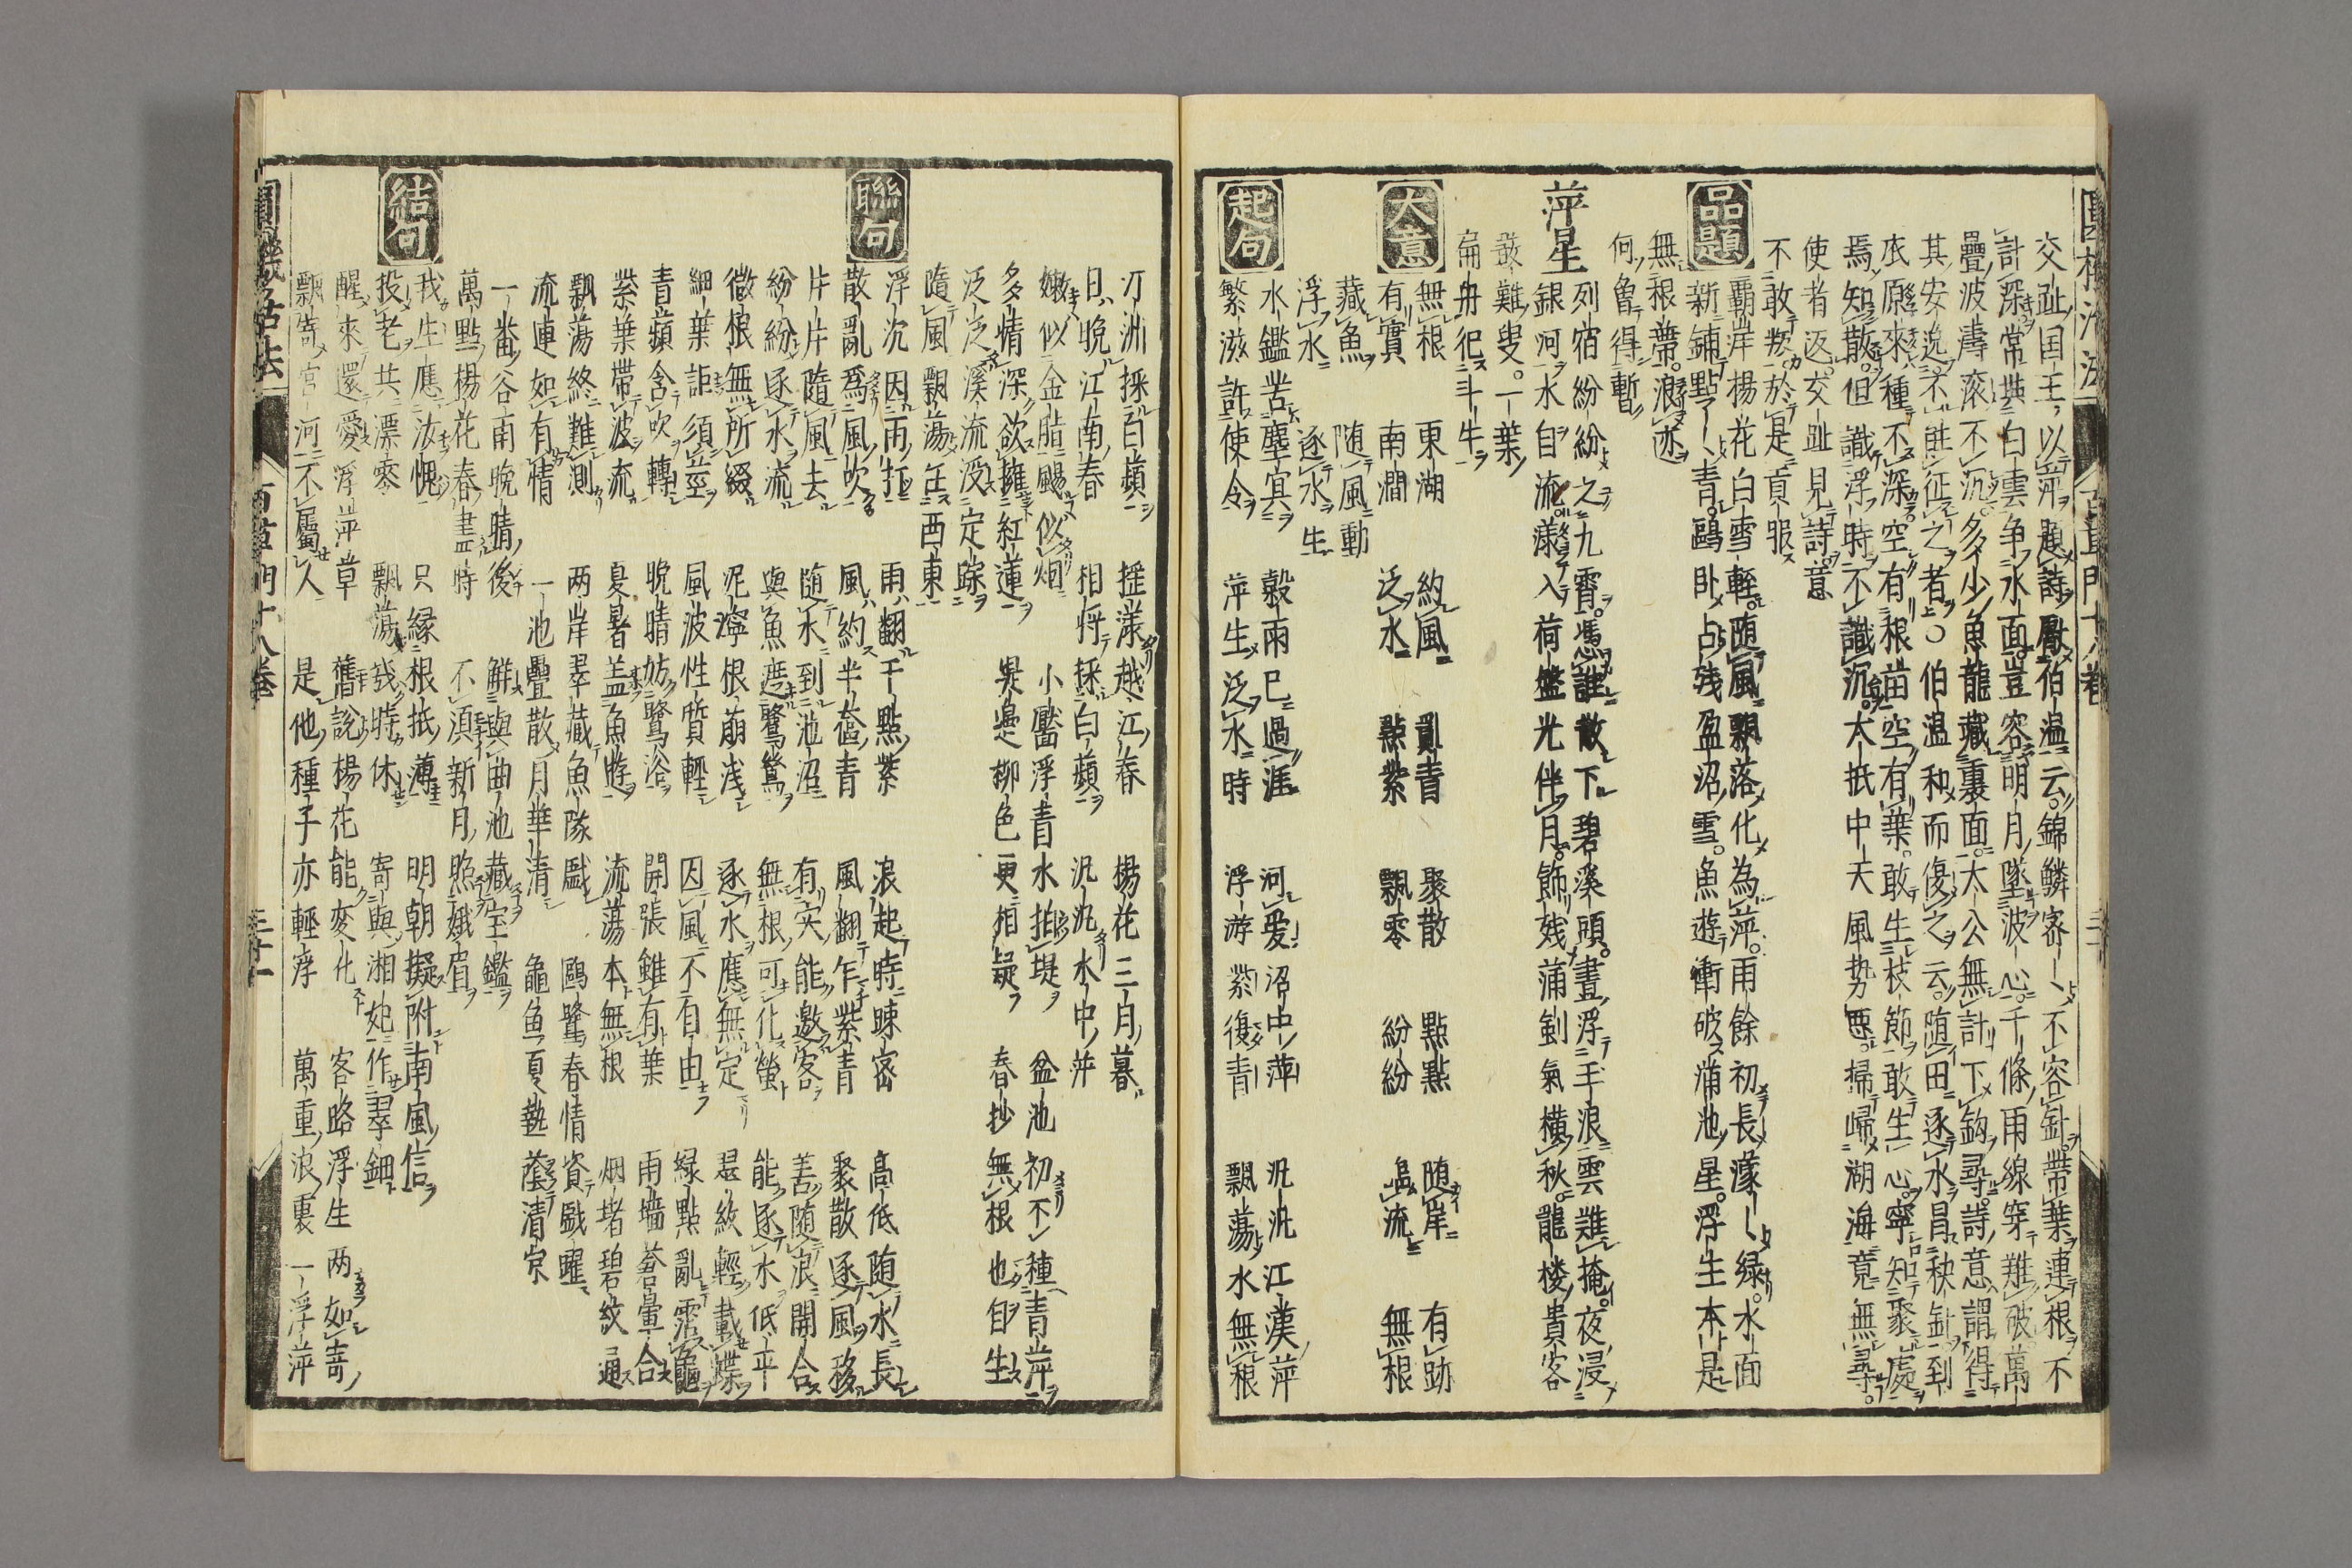 圓機活法 百草門十八卷
交趾国王以萍題詩厭伯温云錦鱗密〱不容針帶葉連根不
計深常共白雲争水面豈容明月墜波心千條雨線穿難破萬
疊波濤滚不沉多少魚龍藏裏面太公無計下鈎尋詩意謂得
其安逸不胜征之者伯温和而復之云随田逐水冒秧針到
底原來種不深空有根苗空有葉敢生枝節敢生心寧知聚處
焉知散但識浮時不識沉大抵中天風势悪掃歸湖海竟無尋
使者返交趾見詩意
不敢叛於是貢服
品題
覇岸楊花白雪輕随風飄落化為萍雨餘初長濛〱緑水面
新鋪點〱青鷗卧占残盈沼雪魚遊衝破満池星浮生本是
無根蒂浪迹
何曽得暫
萍星
列宿紛紛之九霄憑誰散下碧溪頭晝浮手浪雲難掩夜浸
銀河水自流漾入荷盤光伴月飾残蒲劍氣横秋龍棲貴客
難叟一葉
扁舟犯斗牛
大意
無根 東湖 約風 亂青 聚散 點點 随岸 有跡
有實 南澗 泛水 點紫 飄零 紛紛 逐流 無根
藏魚 随風動
浮水 逐水生
起句
水鑑苦塵寘 穀雨已過涯 河爱沼中萍 汎汎江漢萍
繁滋許使令 萍生泛水時 浮游紫復青 飄蕩水無根
汀洲採白蘋 揺漾越江春 楊花三月暮
日晩江南春 相将採白蘋 汎汎水中萍
嫩似金脂颺似烟 小靨浮青水拍堤 盆池初不種青萍
多情深欲擁紅蓮 異邊柳色更相疑 春抄無根也自生
泛泛溪流没定踪
隨風飄蕩任西東
聯句
浮沉因雨抂 雨翻千點紫 浪起時疎密 高低随水長
散亂為風吹 風約半奩青 風翻乍紫青 聚散逐風移
片片隨風去 随水到池沼 有実能邀客 善随浪開合
紛紛逐水流 與魚遮鷺鷥 無根可化螢 能逐水低平
微根無所綴 泥濘根崩浅 逐水應無定 是紋輕載蝶
細葉詎須莖 風波性質輕 因風不自由 緑點亂霑龜
青蘋含吹轉 晩晴妨鷺浴 開張雖有葉 雨墻蒼暈合
紫葉帶波流 夏暑盖魚遊 流蕩本無根 烟堵碧紋通
飄蕩終難測 两岸翠藏魚隊戯 鷗鷺春情資戯躍
流連如有情 一池疊散月華清 龜魚夏熱蔭清涼
一番谷雨晩晴後 鮮與曲池藏宝鑑
萬點楊花春盡時 不湏新月照娥眉
結句
我生應汝愧 只縁根抵薄 明朝擬附南風信
投老共漂零 飄蕩㡬時休 寄與湘妃作翠鈿
醒來還愛浮萍草 舊說楊花能変化 客路浮生两如寄
飄寄宮河不屬人 是他種子亦輕浮 萬重浪裏一浮萍
圓機活法 百草門十八卷 三十一